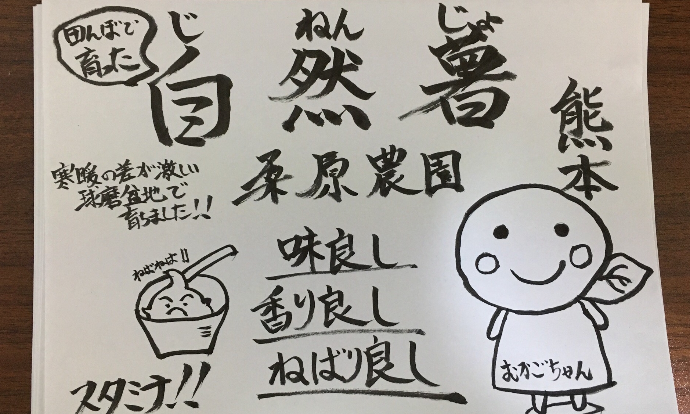 田んぼで
育った
じ ねん じょ
自然薯
熊本
桑原農園
寒暖の差が激しい
球磨盆地で
育ちました!!
味良し
香り良し
ねばり良し
ねばねば!!
スタミナ!!
むかごちゃん